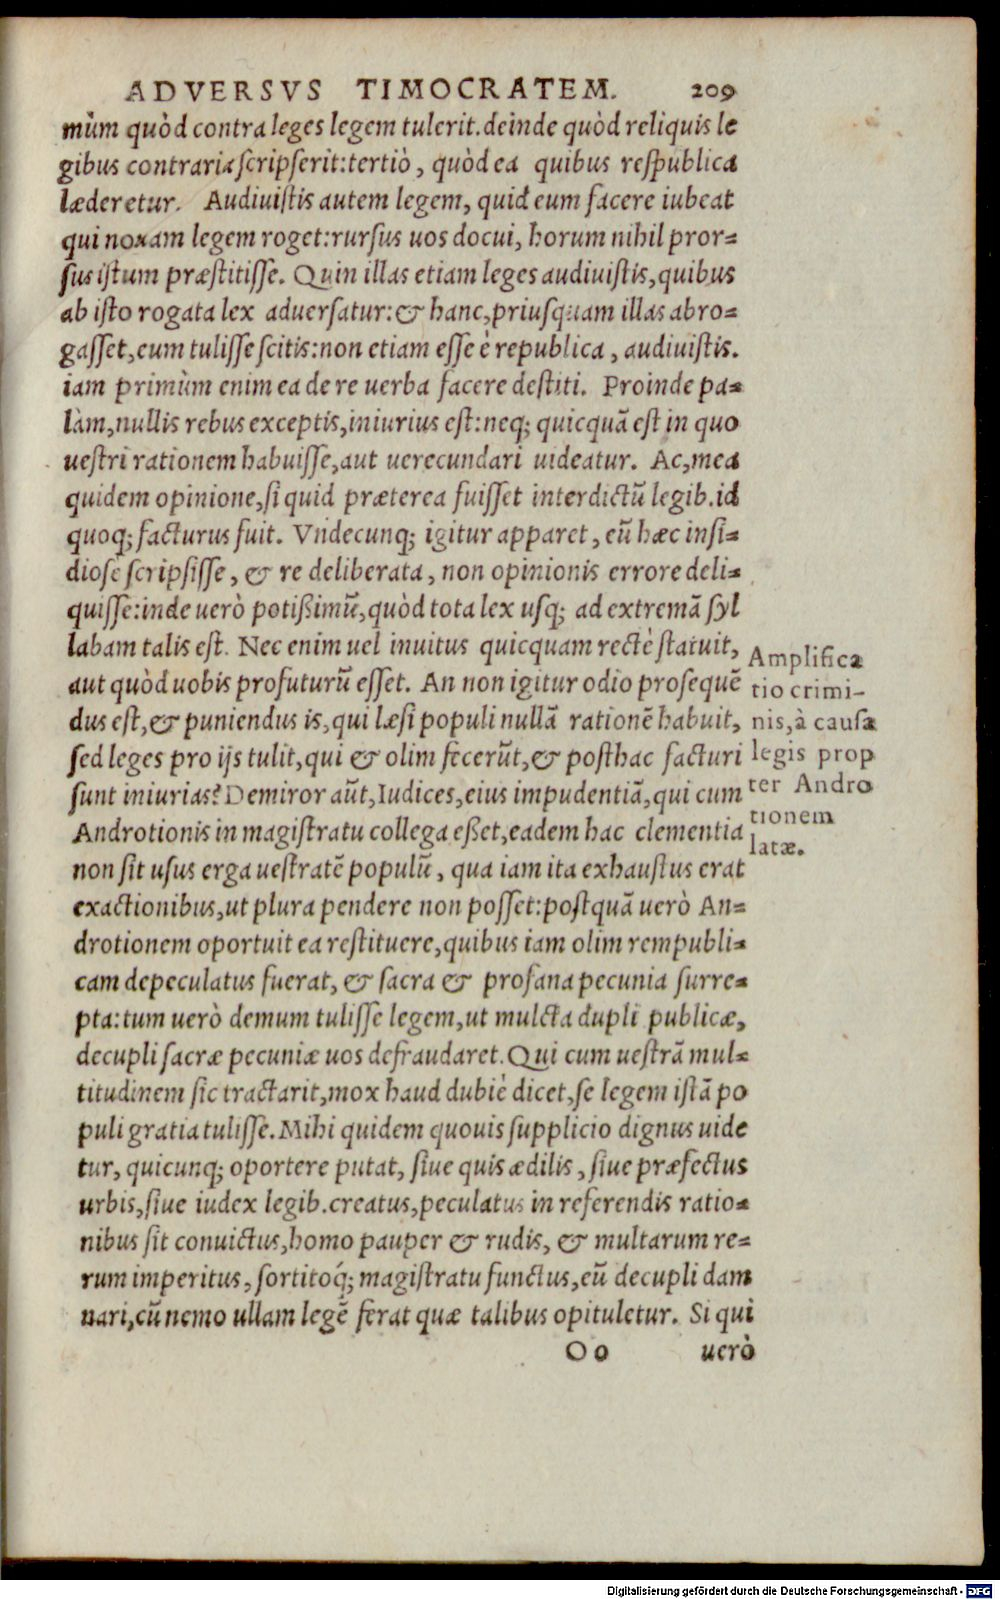 ADVERSVS TIMOCRATEM. 209
mùm quòd contra leges legem tulerit. deinde quòd reliquis le
gibus contraria scripserit: tertiò, quòd ea quibus respublica
læderetur. Audiuistis autem legem, quid eum facere iubeat
qui nouam legem roget: rursus uos docui, horum nihil pror=
sus istum præstitisse. Quin illas etiam leges audiuistis, quibus
ab isto rogata lex aduersatur: & hanc, priusquam illas abro=
gasset, eum tulisse scitis: non etiam esse è republica, audiuistis.
iam primùm enim ea de re uerba facere destiti. Proinde pa=
làm, nullis rebus exceptis, iniurius est: neq; quicquā est in quo
uestri rationem habuisse, aut uerecundari uideatur. Ac, mea
quidem opinione, si quid præterea fuisset interdictū legib. id
quoq; facturus fuit. Vndecunq; igitur apparet, eū hæc insi=
diose scripsisse, & re deliberata, non opinionis errore deli=
quisse: inde uerò potißimū, quòd tota lex usq; ad extremā syl
labam talis est. Nec enim uel inuitus quicquam rectè statuit,
aut quòd uobis profuturū esset. An non igitur odio prosequē
dus est, & puniendus is, qui læsi populi nullā rationē habuit,
sed leges pro ijs tulit, qui & olim fecerūt, & posthac facturi
sunt iniurias? Demiror aūt, Iudices, eius impudentiā, qui cum
Androtionis in magistratu collega eßet, eadem hac clementia
non sit usus erga uestratē populū, qua iam ita exhaustus erat
exactionibus, ut plura pendere non posset: postquā uerò An=
drotionem oportuit ea restituere, quibus iam olim rempubli=
cam depeculatus fuerat, & sacra & profana pecunia surre=
pta: tum uerò demum tulisse legem, ut mulcta dupli publicæ,
decupli sacræ pecuniæ uos defraudaret. Qui cum uestrā mul=
titudinem sic tractarit, mox haud dubiè dicet, se legem istā po
puli gratia tulisse. Mihi quidem quouis supplicio dignus uide
tur, quicunq; oportere putat, siue quis ædilis, siue præfectus
urbis, siue iudex legib. creatus, peculatus in referendis ratio=
nibus sit conuictus, homo pauper & rudis, & multarum re=
rum imperitus, sortitoq́; magistratu functus, eū decupli dam
nari, cū nemo ullam legē ferat quæ talibus opituletur. Si qui
Oo uerò
Amplifica
tio crimi-
nis, à causa
legis prop
ter Andro
tionem
latæ.
Digitalisierung gefördert durch die Deutsche Forschungsgemeinschaft - DFG